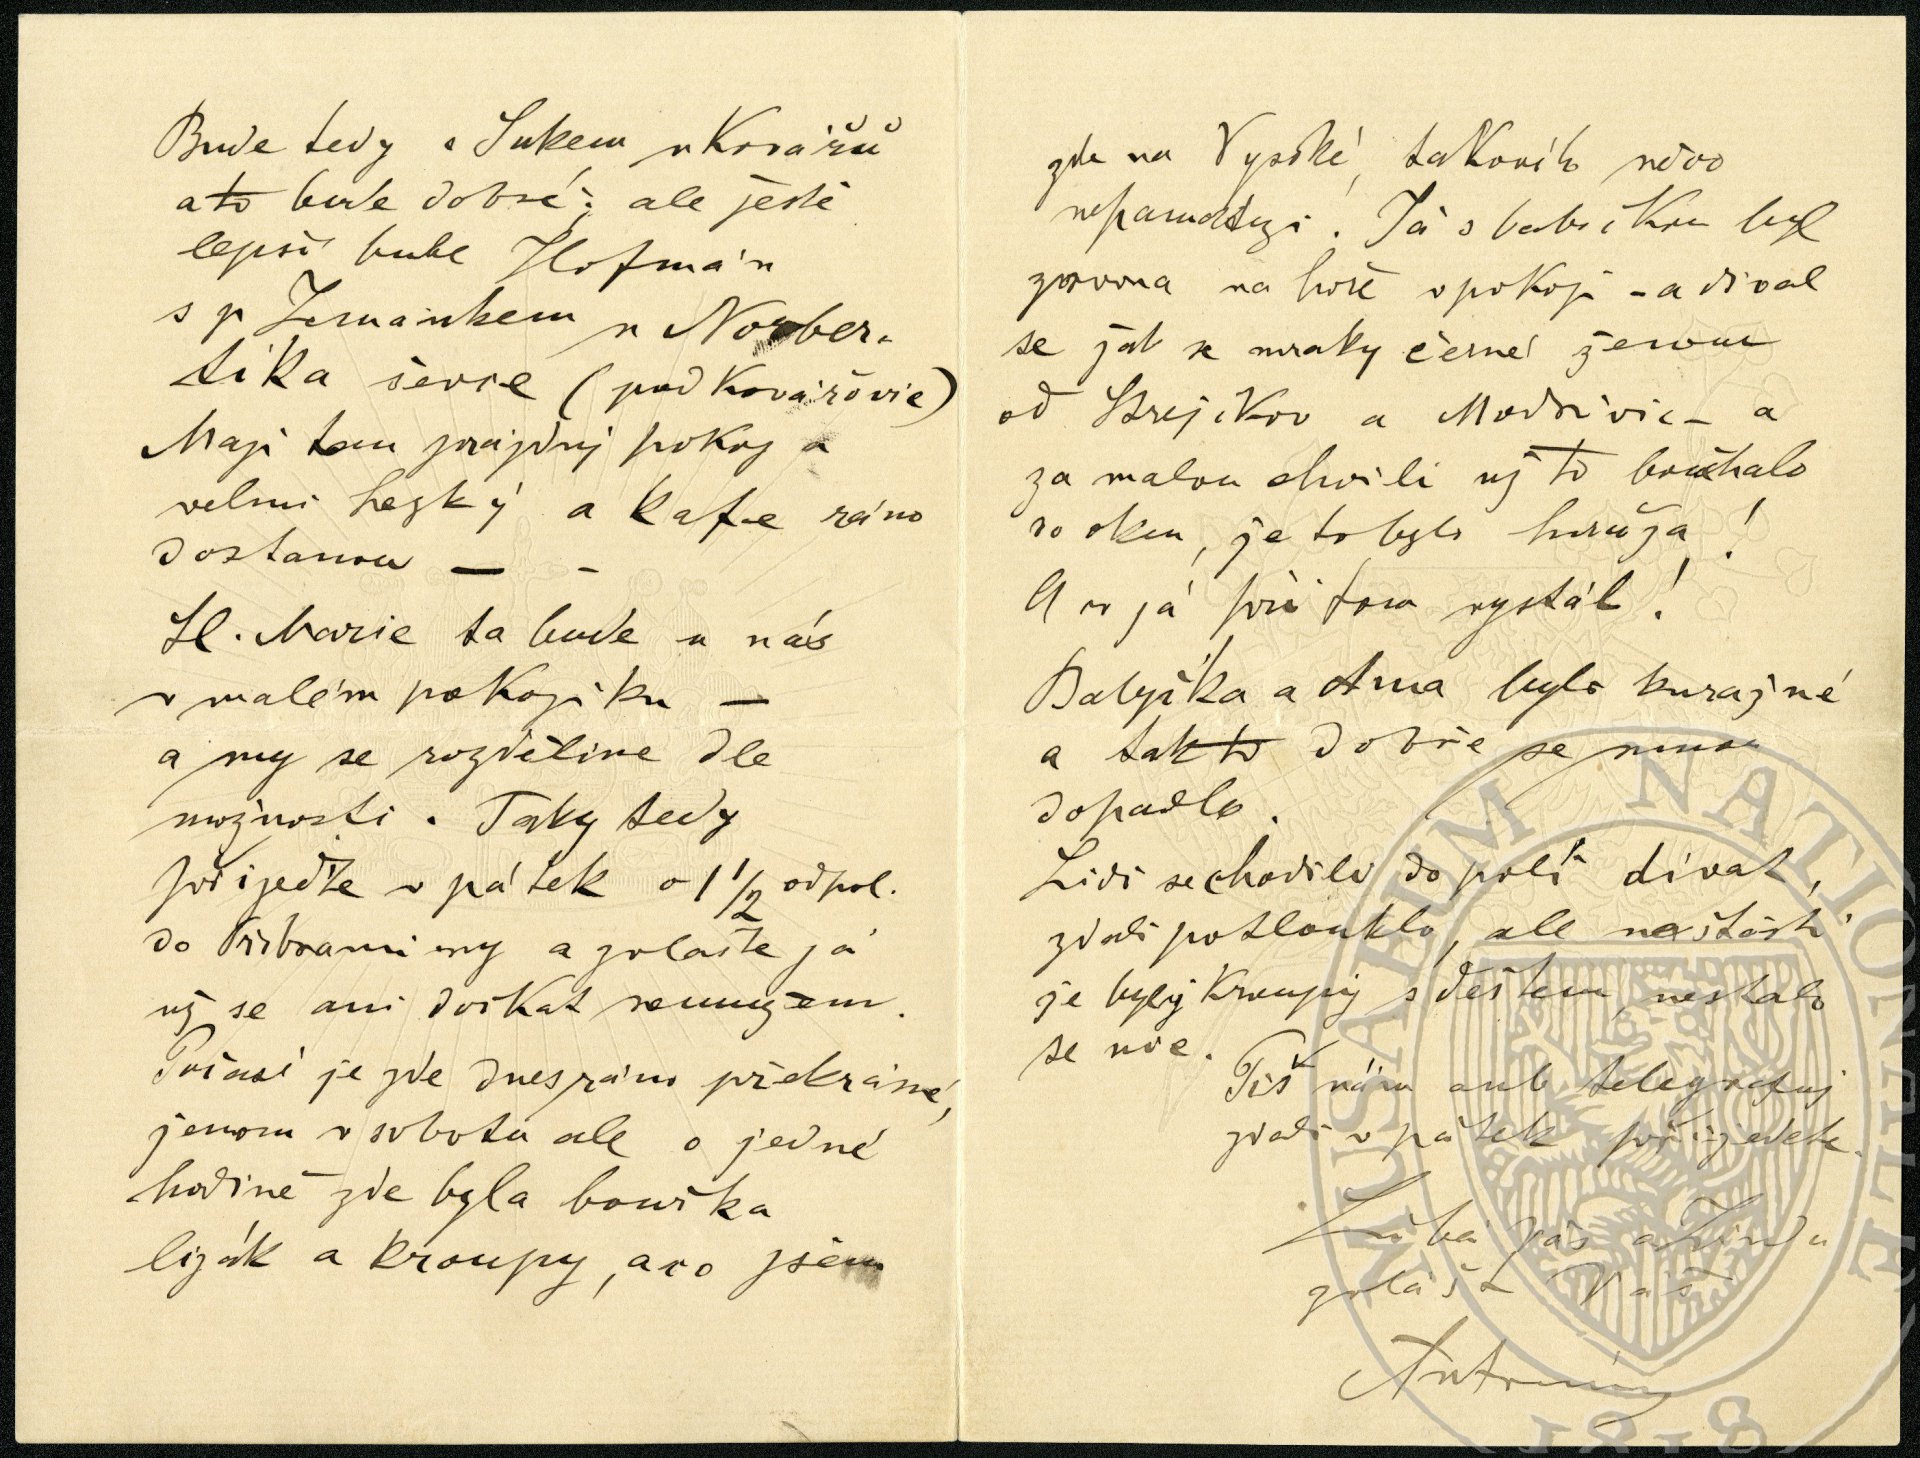 Bude tedy s Sukem u Kovářů
a to bude dobré; ale ještě
lepší bude Hofmán
s p Zemánkem u Norber-
tíka ševce (pod Kovářovic)
Mají tam prázdný pokoj a
velmi hezký a kafe ráno
dostanou — –
Sl. Marie ta bude u nás
v malém pokojíku —
a my se rozdělíme dle
možnosti. Taky tedy
přijeďte v pátek o 1 1/2 odpol.
do Příbrami my a zvláště já
už se ani dočkat nemůžem.
Počasí je zde dnes ráno překrásné,
jenom v sobotu ale o jedné
hodině zde byla bouřka
liják a kroupy, a co jsem
zde na Vysoké, takového něco
nepamatuji. Já s babičkou byl
zrovna na hoře v pokoji – a díval
se jak se mraky černé ženou
od Strejčkov a Modřovic – a
za malou chvíli už to bouchalo
do oken, že to byla hrůza!
A co já při tom vystál!
Babička a Anna byly kurážné
a tak to dobře se mnou
dopadlo.
Lidi se chodili do polí dívat,
zdali potlouklo, ale na štěstí
že byly kroupy s deštěm, nestalo
se nic.
Piš nám anb telegrafuj
zdali v pátek přijedete.
Líbá Vás a Jindu
zvlášt Váš
Antonín
MUSAEUM NATIONALE
1818